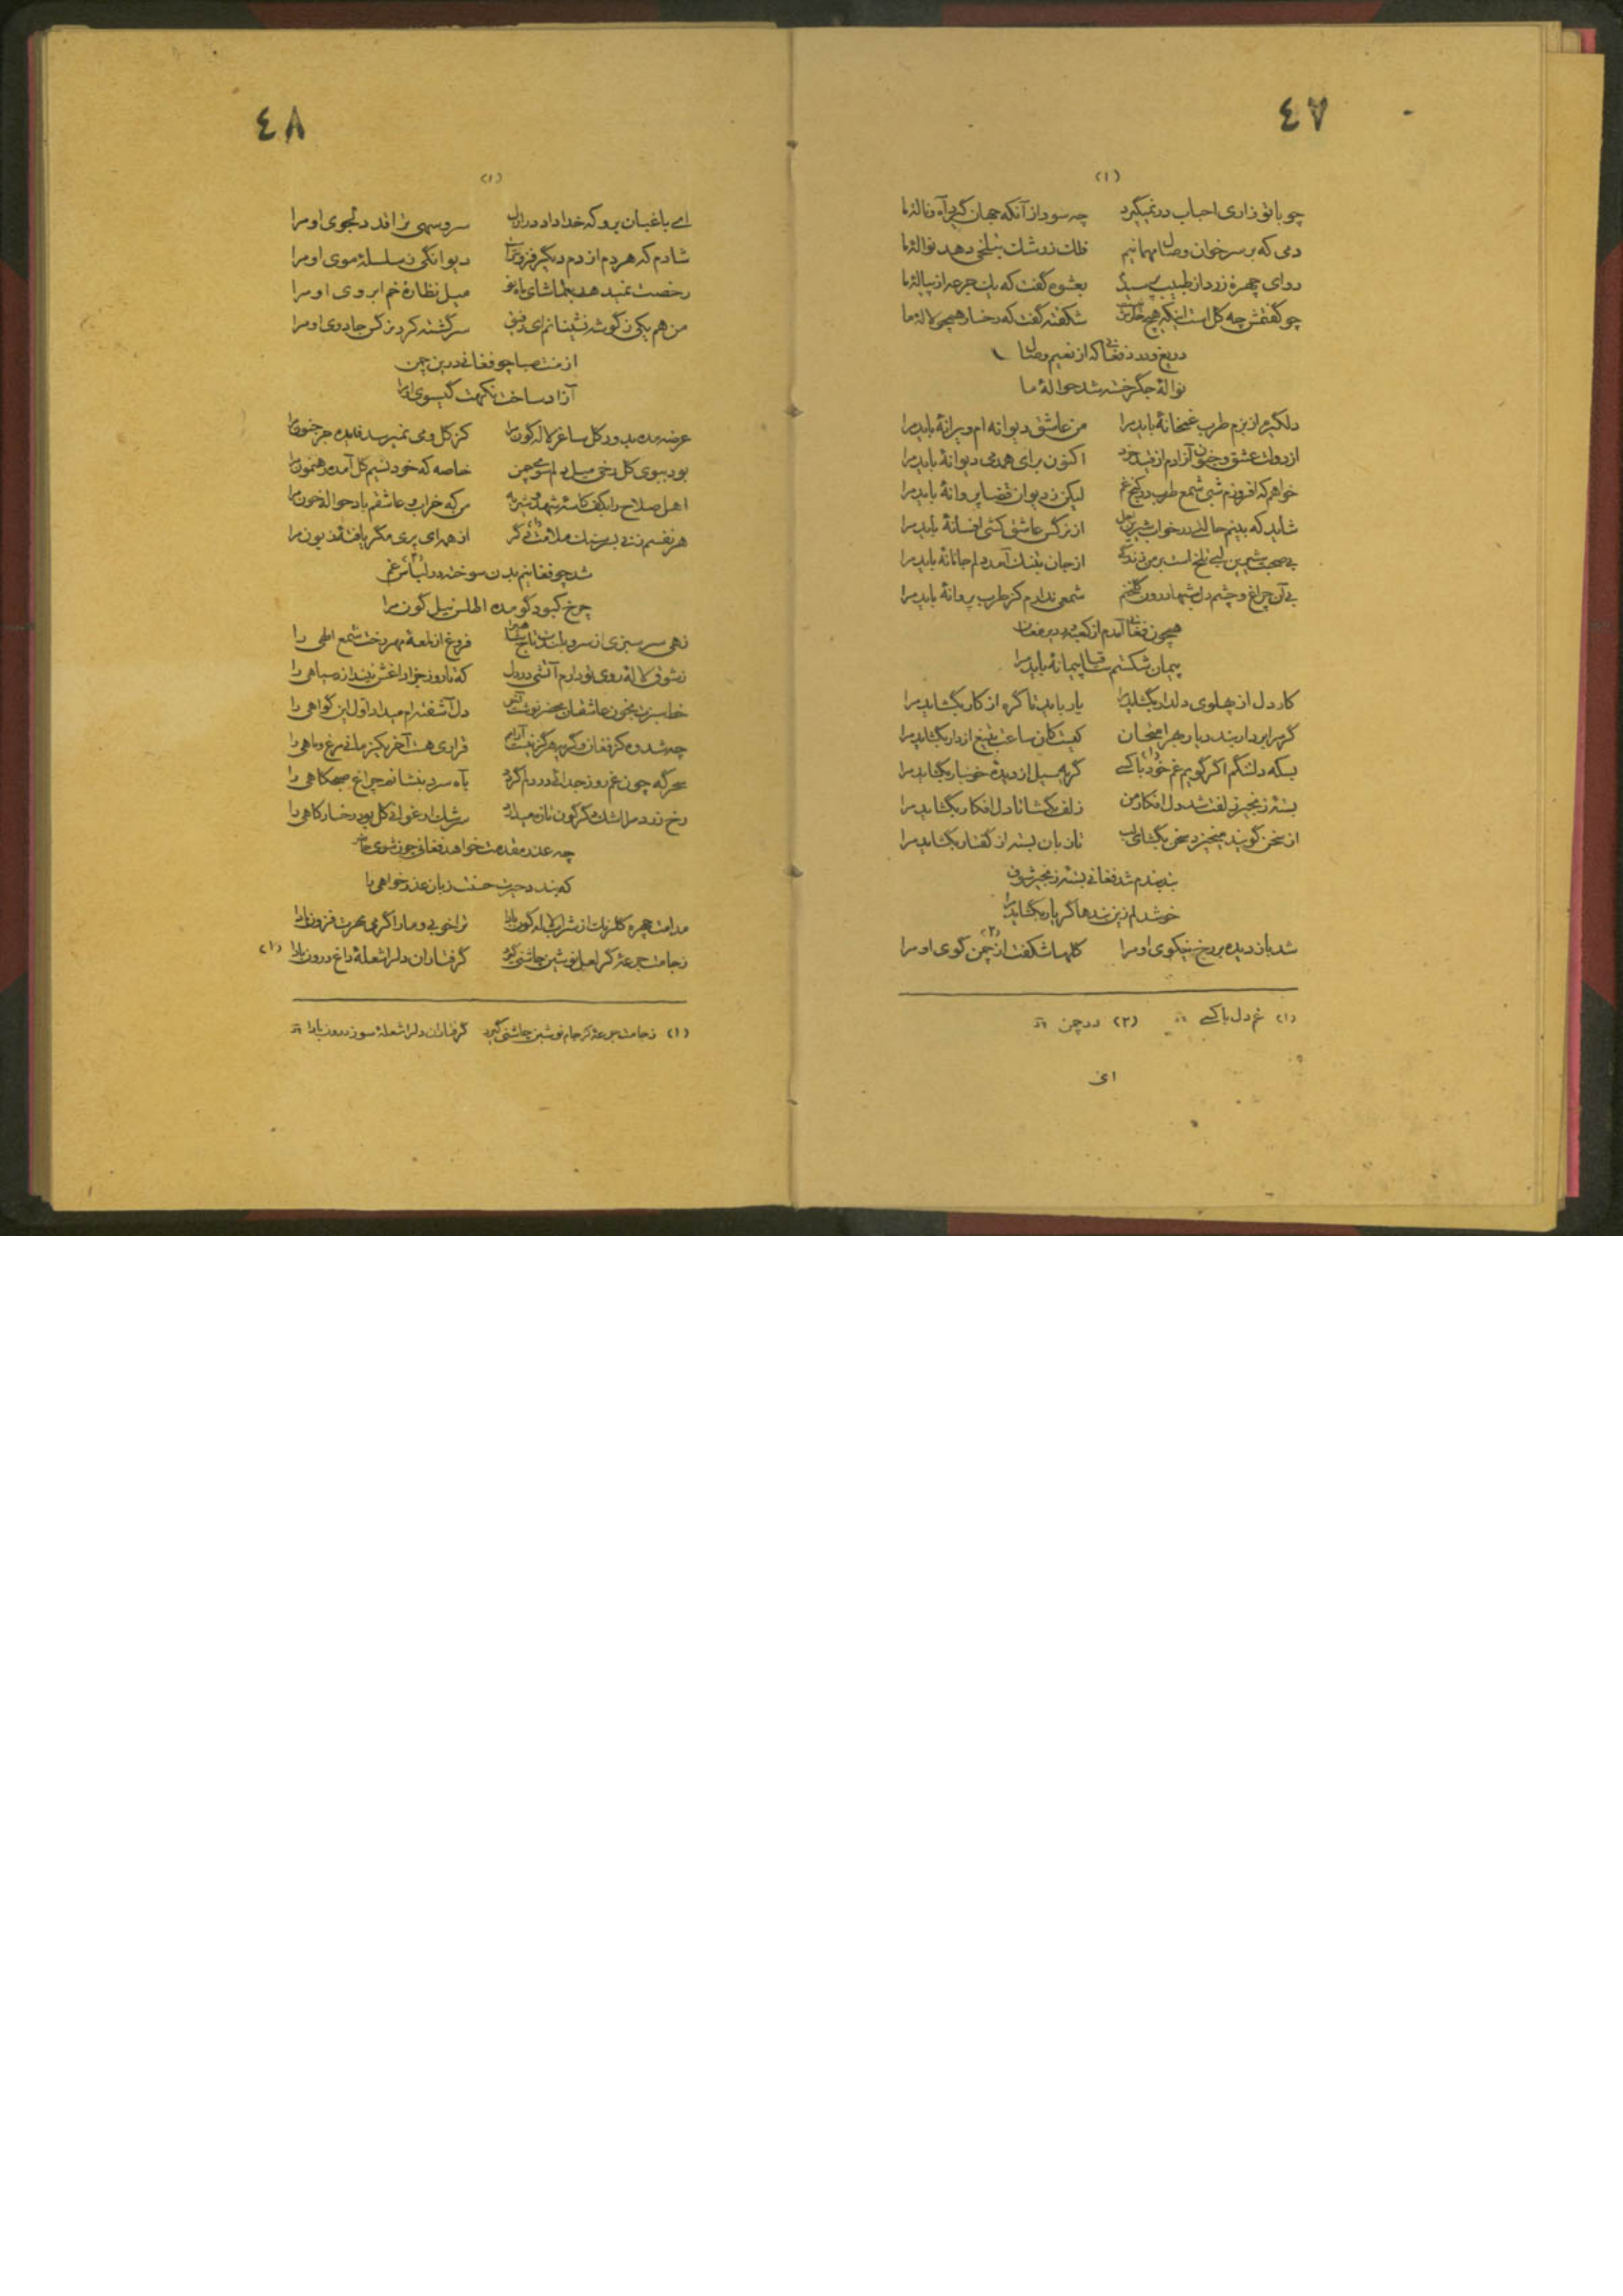 ٤٧
(١)
چو با تو زاری احباب در نمیگیرد چه سود از آنکه جهان گیرد آه و نالهٔ ما
دمی که بر سر خوان وصال مهمانیم فلک ز رشک بتلخی دهد نوالهٔ ما
دوای چهرهٔ زرد از طبیب پرسیدم بعشوه گفت که یک جرعه از پیالهٔ ما
چو گفتمش چه گل است اینکه هیچ خارش نیست شکفته گفت که رخسار همچو لالهٔ ما
دریغ و درد فغانی که از نعیم وصال
نوالهٔ جگر خسته شد حوالهٔ ما
دلگیرم از بزم طرب غمخانهٔ باید مرا من عاشق دیوانه ام ویرانهٔ باید مرا
از دولت عشق و جنون آزادم از قید خرد اکنون برای همدمی دیوانهٔ باید مرا
خواهم که افروزم شبی شمع طرب در کنج غم لیکن ز دیوان قضا پروانهٔ باید مرا
شاید که بینم حالتی در خواب شیرین اجل از نرگس عاشق کشی افسانهٔ باید مرا
بی صحبت شیرین لبی تلخ است بر من زندگی از جان بتنگ آمد دلم جانانهٔ باید مرا
بی آن چراغ و چشم دل شبها درون گلخنم شمعی ندارم کز طرب پروانهٔ باید مرا
همچون فغانی آمدم از کعبه در دیر مغان
پیمان شکستم ساقیا پیمانهٔ باید مرا
کار دل از پهلوی دلدار بگشاید مرا یار باید تا گره از کار بگشاید مرا
گر سرابر دار بندد یار بهر امتحان
بسکه دلتنگم اگر گویم غم خود با کسی گریه سیل از دیدهٔ خونبار بگشاید مرا
بستهٔ زنجیر زلفت شد دل افکار من زلف بگشا تا دل افکار بگشاید مرا
از سخن گویند میخیزد سخن بگشای لب تا زبان بسته از گفتار بگشاید مرا
بند بندم شد فغانی بستهٔ زنجیر شوق
خوش دلم زین بندها گر یار بگشاید مرا
شد باز دیده بر رخ نیکوی او مرا گلها شکفت از چمن کوی او مرا (٢)
(١) غم دل با کسی (٢) در چمن
ای
٤٨
(١)
ای باغبان برو که خدا داد در ازل سرو سهی ترا قد دلجوی او مرا
شادم که هر دم از دم دیگر فزونترست دیوانگی ز سلسلهٔ موی او مرا
رخصت نمیدهد بتماشای ماه نو میل نظارهٔ خم ابروی او مرا
من هم یکی ز گوشه نشینانم ای رفیق سرگشته کرد نرگس جادوی او مرا
از منت صبا چو فغانی درین چمن
آزاد ساخت نکهت گیسوی او مرا
عرضه مده بدور گل ساغر لاله گون مرا کز گل و می نمیرسد فایده جز جنون مرا
بود ببوی گل رخی میل دلم سوی چمن خاصه که خود نسیم گل آمده رهنمون مرا
اهل صلاح را بکف کاسهٔ شهد و شیر به من که خراب و عاشقم باد حوالهٔ خون مرا
هر نفسم زنی بسر سنگ ملامتی دگر از همه ای پری مگر یافتهٔ زبون مرا
شد چو فغانیم بدن سوخته در لباس غم
چرخ کبود گو مده اطلس نیل گون مرا
فروغ از لمعهٔ مهر رخت شمع الهی را
ز شوق لالهٔ روی تو دارم آتشی در دل که تا روز جزا داغش نیندازد سیاهی را
دل آشفته ام میداد اول این گواهی را
قراری هست آخر یکزمانی مرغ و ماهی را
سحرگه چون غم روز جدائی در دلم گردد بآه سرد بنشانم چراغ صبحگاهی را
سرشک ارغوانی گل بود رخسار کاهی را
چه عذر مقدمت خواهد فغانی چون شوی حاضر
که بندد حیرت حسنت زبان عذر خواهی را
مدامت چهره گلرنگ از شراب لاله گون بادا ترا خوبی و ما را گرمی مهرت فزون بادا
ز جامت جرعهٔ کز لعل نوشین چاشنی گیرد گرفتاران دل را شعلهٔ داغ درون بادا (١)
(١) ز جامت جرعهٔ کز جام نوشین چاشنی گیرد گرفتاران دل را شعلهٔ سوز درون بادا